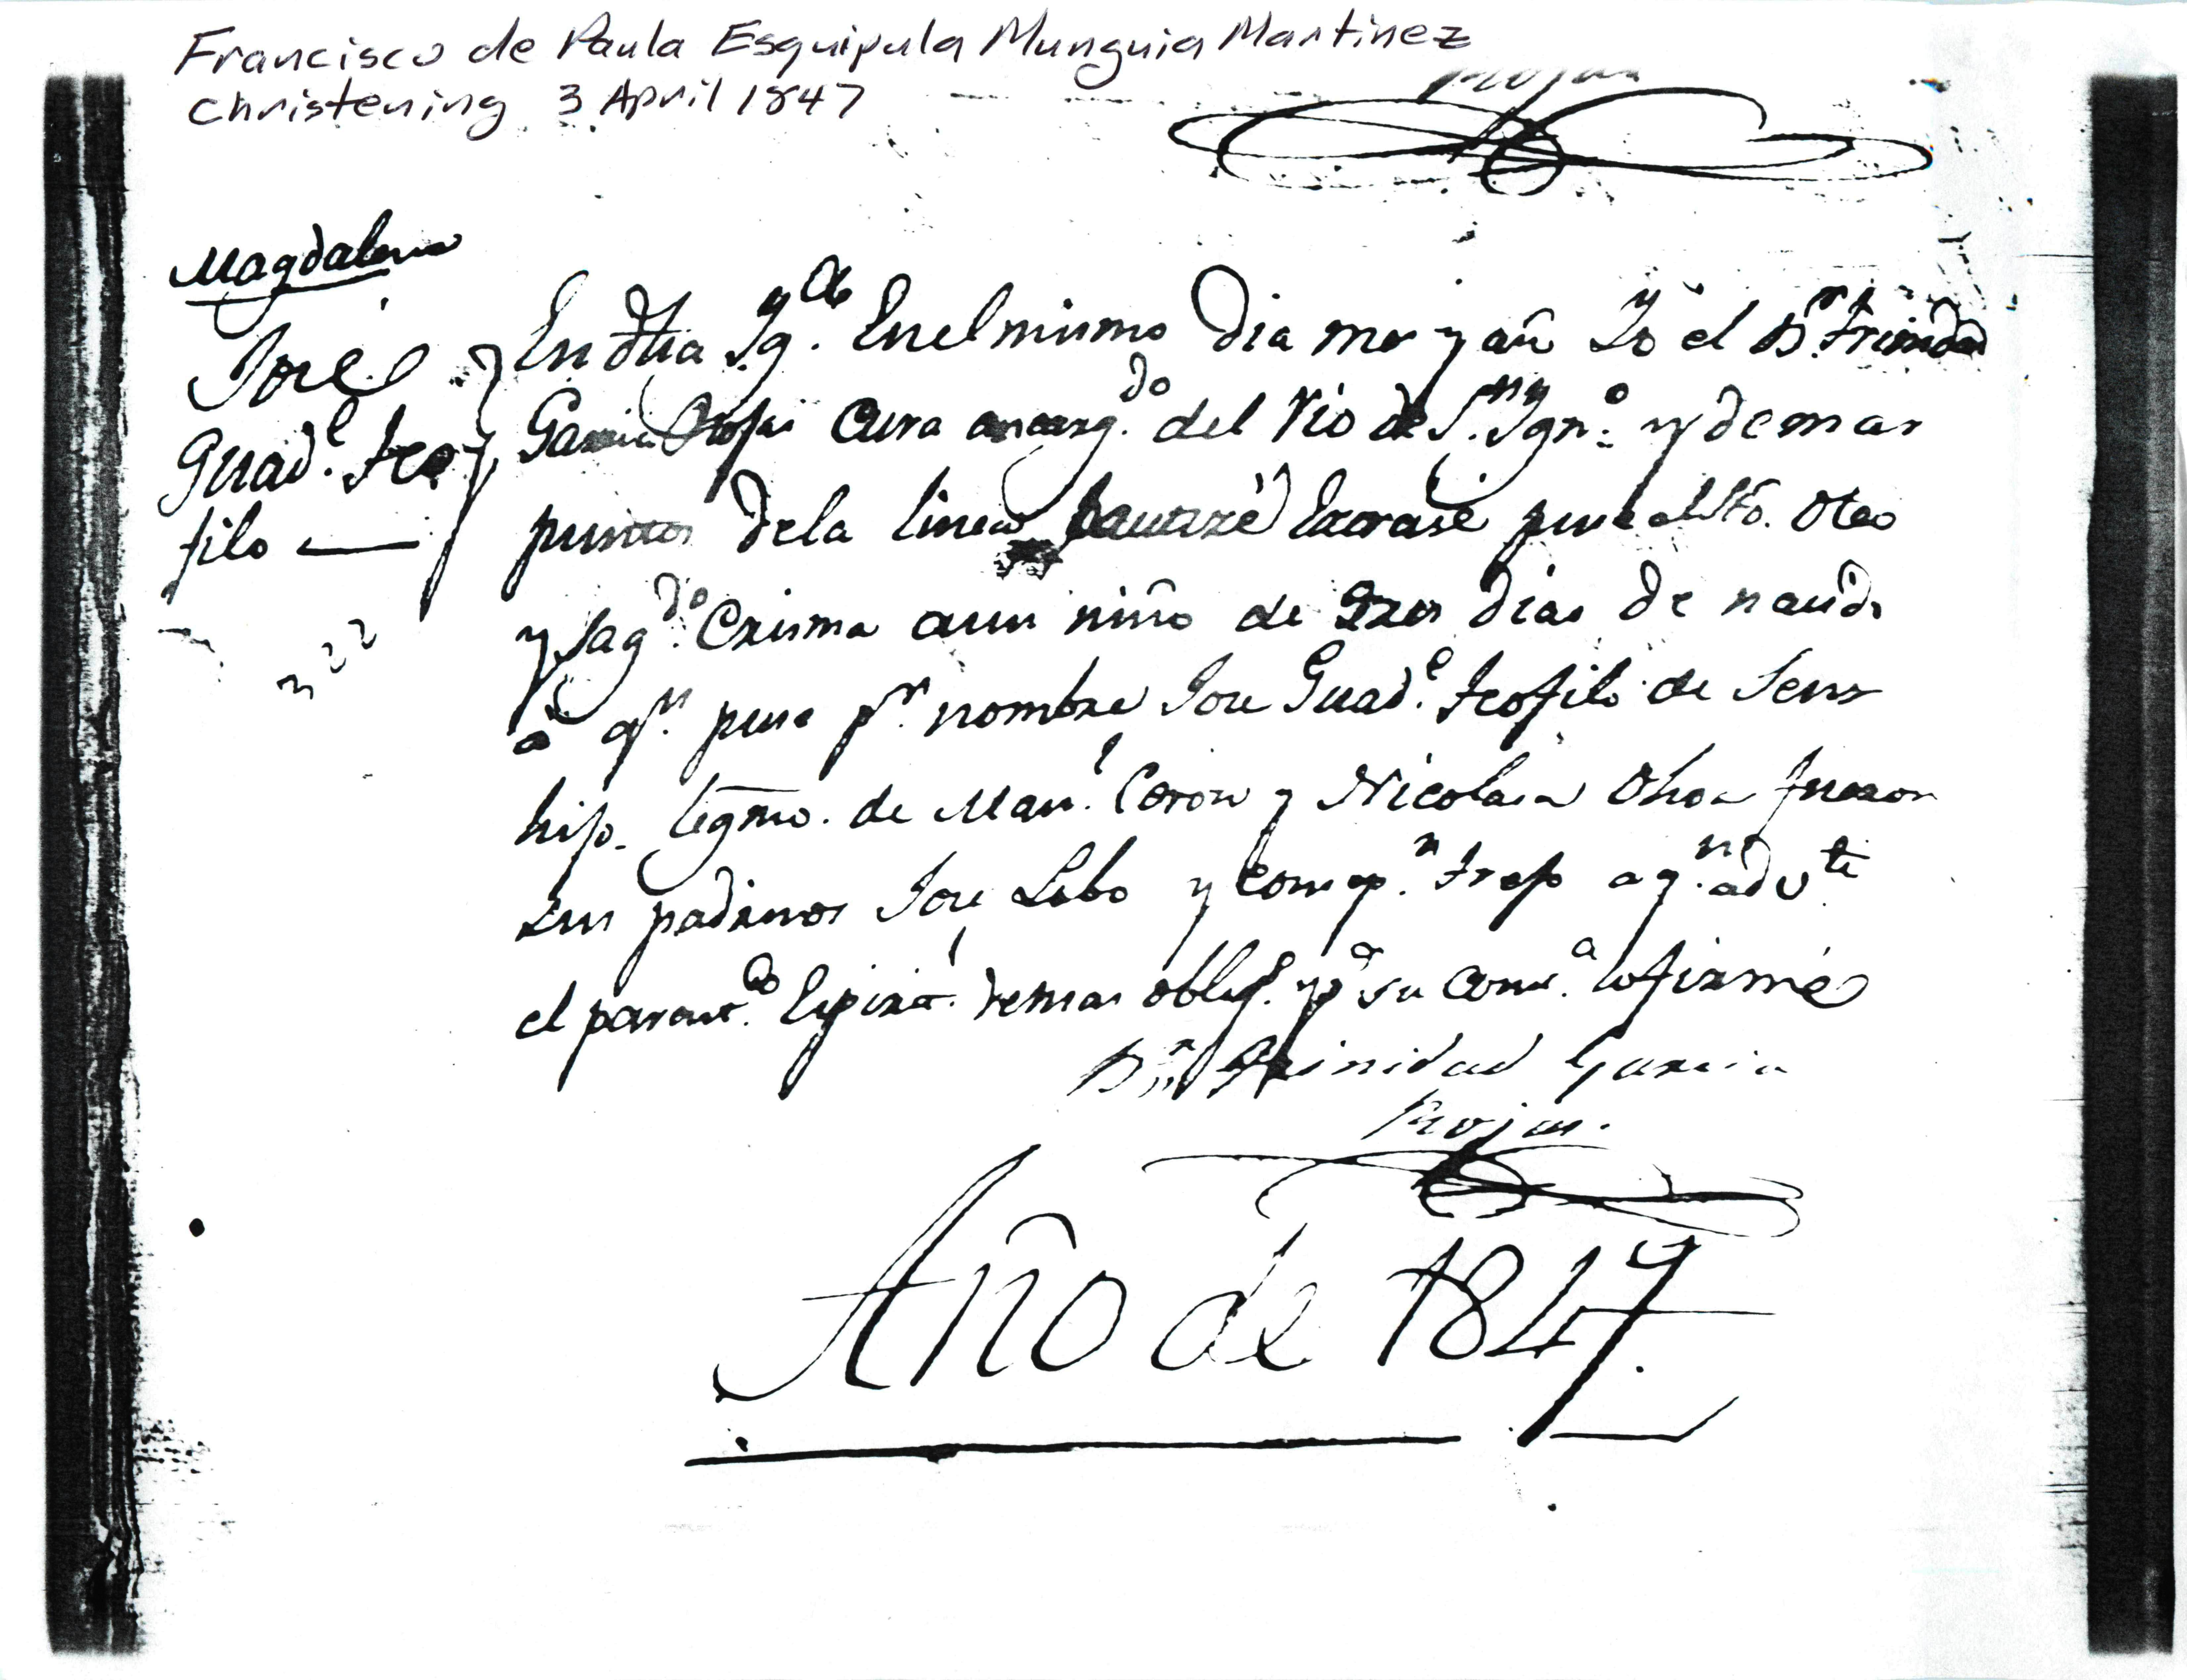 Francisco de Paula Esquipula Munguia Martinez
Christening 3 April 1847
Rojas
Magdalena
José
Guad.e Teo
filo
322
En dha Yg.a En el mismo dia mes y año Yo el B.r Trinidad
Garcia Rojas Cura encarg.do del Rio de S.n Ygn.o y demas
puntos de la linea bautizé puse el Sto. Oleo
y Sag.do Crisma a un niño de tres dias de nacido
a q.n puse p.r nombre Jose Guad.e Teofilo de
hijo legmo. de Man.l y Nicolasa Ohoa fueron
sus padrinos Jose Lobo y a q.nes adv.ti
el parent.co Espirál demas oblig.s y p.a su const.a lo firmé
B.r Trinidad Garcia
Rojas.
Año de 1847.